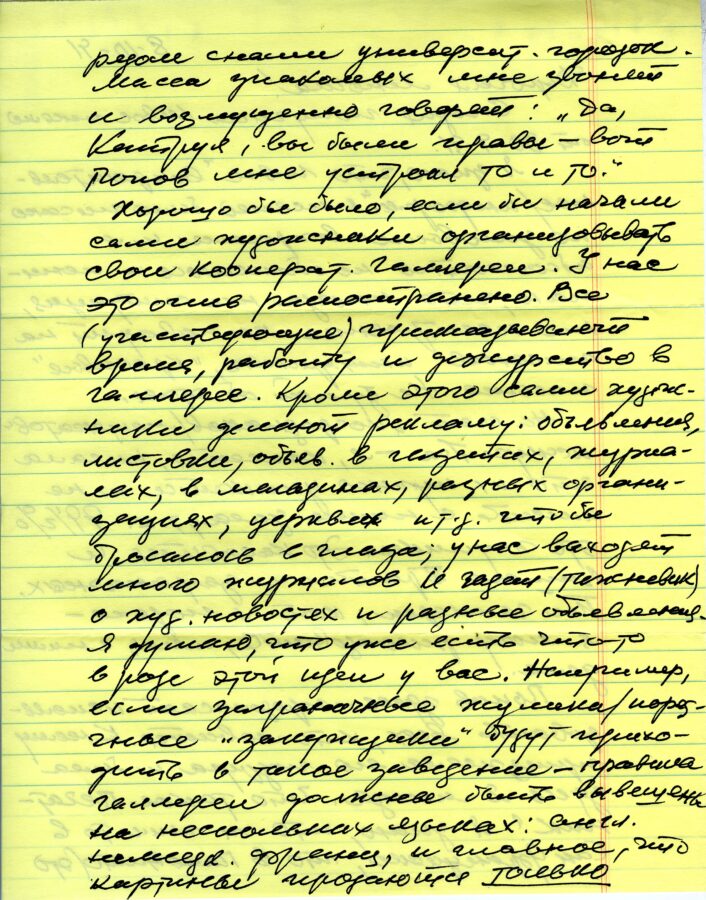 рядом с нами университ. городок.
Масса знакомых мне звонят
и возмущенно говорят: „Да,
Катруля, вы были правы – вот
Попов мне устроил то и то."
Хорошо бы было, если бы начали
сами художники организовывать
свои кооперат. галлереи. У нас
это очень распостранено. Все
(участвующие) прикладывают
время, работу и дежурство в
галлерее. Кроме этого сами худож-
ники делают рекламу: объявления,
листовки, объяв. в газетах, журна-
лах, в магазинах, разных органи-
зациях, церквях и т.д. чтобы
бросалось в глаза; у нас выходят
много журналов и газет
о худ. новостях и разные объявления.
Я думаю, что уже есть что-то
в роде этой идеи у вас. Например,
если заграничные жулики/норя-
чные „закупщики" будут прихо-
дить в такое заведение – правила
галлереи должны быть вывешены
на нескольких языках: англ.
немецк. француз, и главное, что
картины продаются только